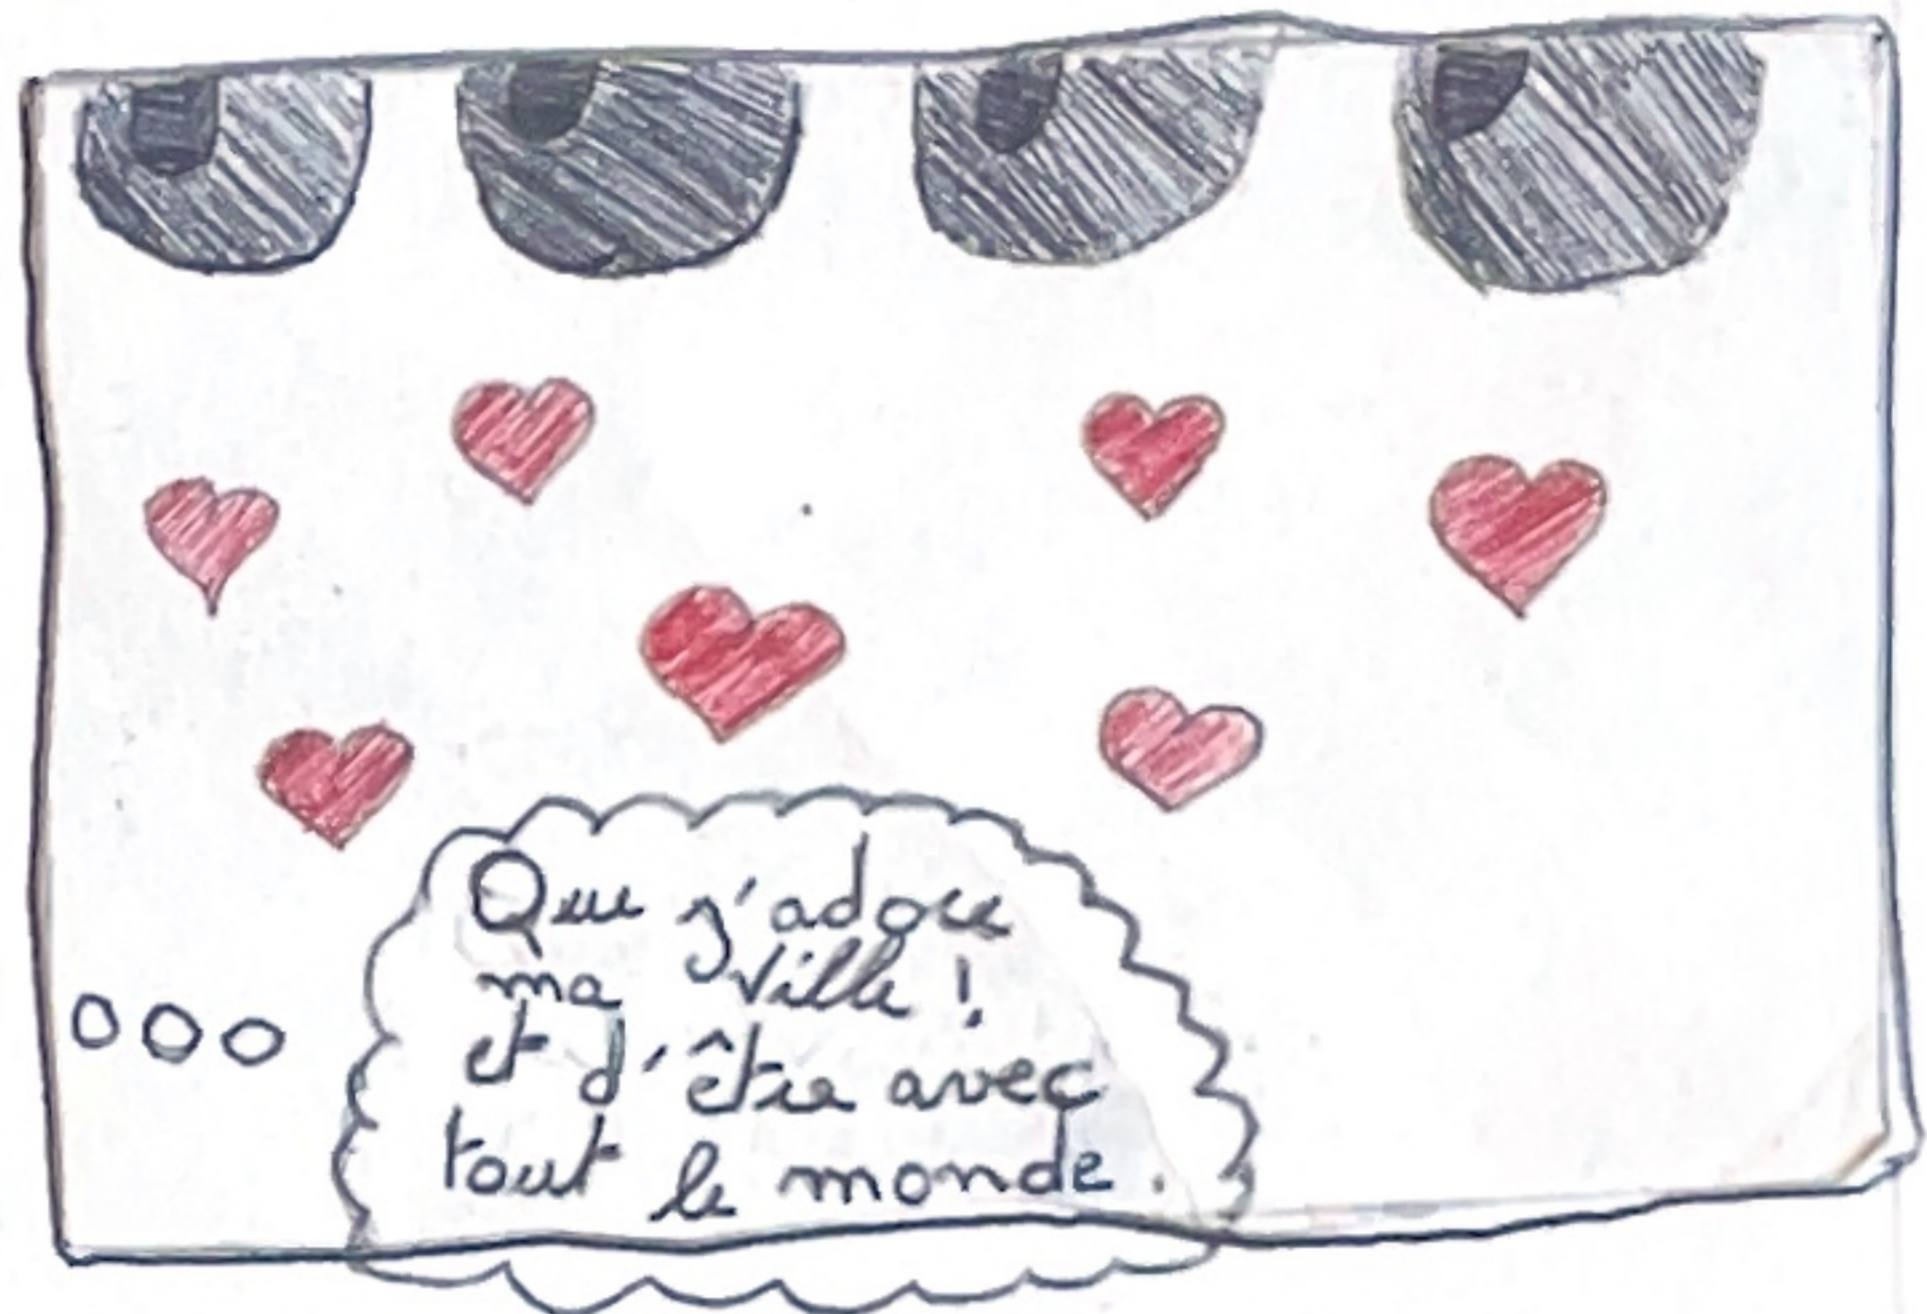 Que j'adore
ma ville !
et d'être avec
tout le monde.